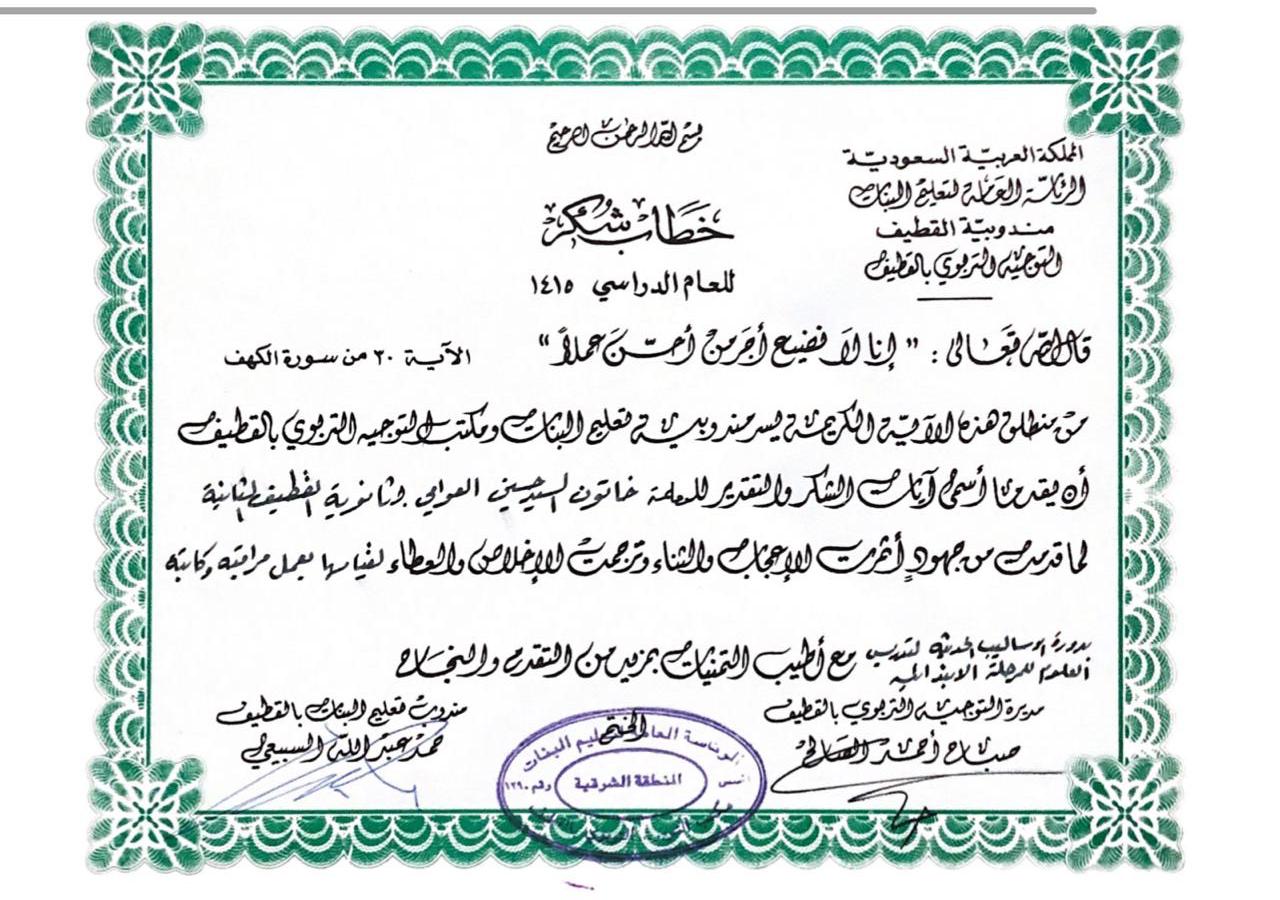 بسم الله الرحمن الرحيم
المملكة العربية السعودية
الرئاسة العامة لتعليم البنات
مندوبية القطيف
التوجيه التربوي بالقطيف
خطاب شكر
للعام الدراسي ١٤١٥
قال الله تعالى : " إنا لا نضيع أجر من أحسن عملاً " الآية ٣٠ من سورة الكهف
من منطلق هذه الآية الكريمة يسر مندوبية تعليم البنات ومكتب التوجيه التربوي بالقطيف
أن يقدما أسمى آيات الشكر والتقدير للمعلمة خاتون السيد حسين العوامي بثانوية القطيف الثانية
لما قدمت من جهودٍ أثمرت الإعجاب والثناء وترجمت الإخلاص والعطاء لقيامها بعمل مراقبة وكاتبة
بدورة الأساليب الحديثة لتدريس
العلوم للمرحلة الابتدائية
مع أطيب التمنيات بمزيد من التقدم والنجاح
مديرة التوجيه التربوي بالقطيف
صباح أحمد الصالح
مندوب تعليم البنات بالقطيف
حمد عبد الله السبيعي
الختم
الرئاسة العامة لتعليم البنات
المنطقة الشرقية